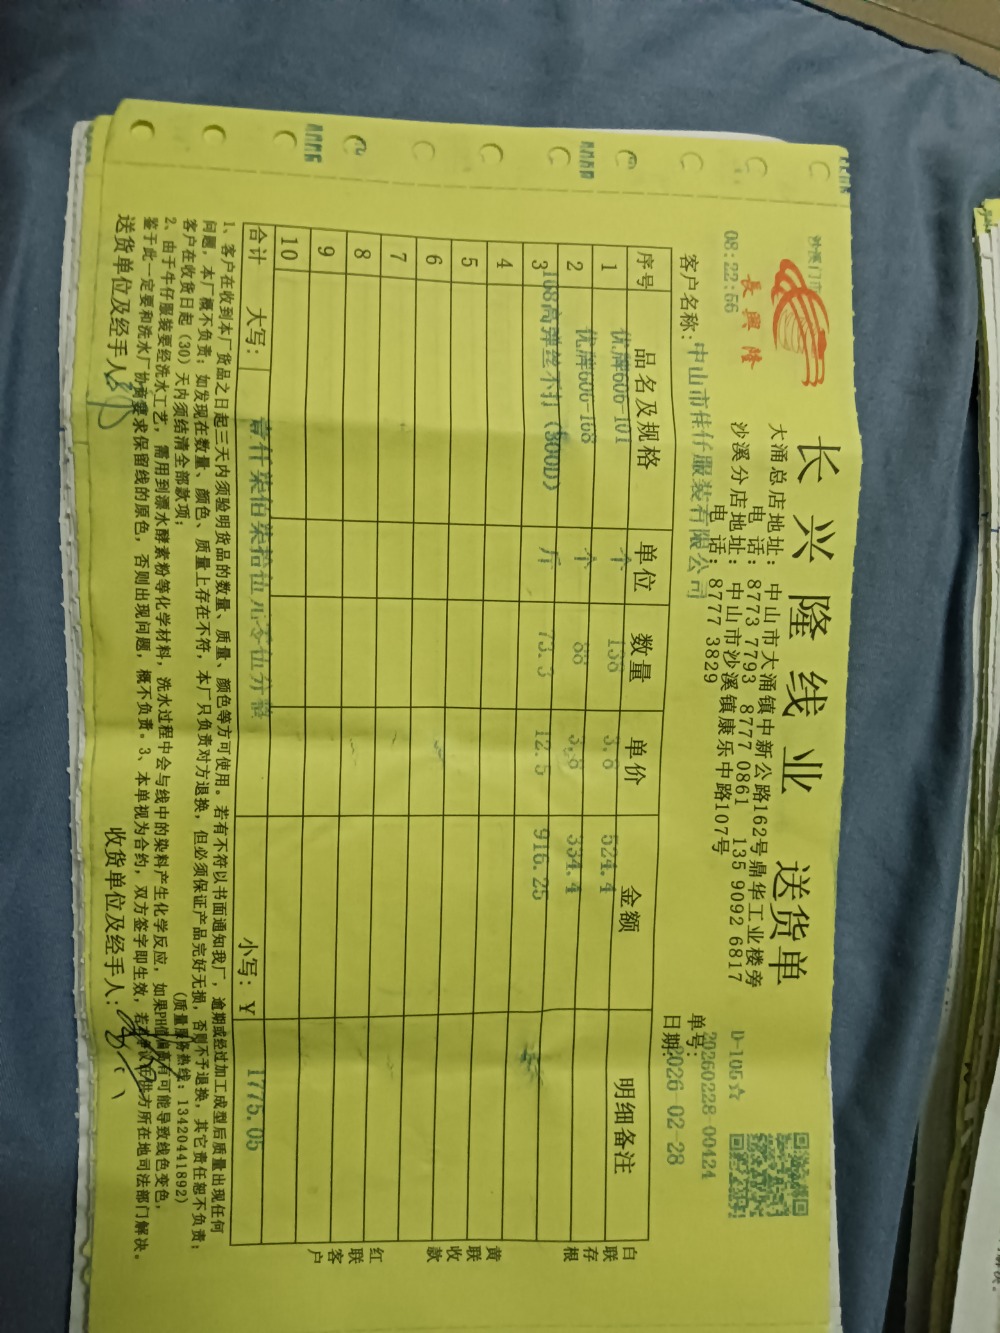 長興隆
长兴隆线业 送货单
大涌总店地址: 中山市大涌镇中新公路162号鼎华工业楼旁
电话: 8773 7793 8777 0861 135 9092 6817
沙溪分店地址: 中山市沙溪镇康乐中路107号
电话: 8777 3829
D-105☆
08:22:56
单号: 20260228-00424
客户名称: 中山市佳仔服装有限公司
日期: 2026-02-28
序号 品名及规格 单位 数量 单价 金额 明细备注
1 优牌606-101 个 138 3.8 524.4
2 优牌606-168 个 88 3.8 334.4
3 168高弹丝不打(300D) 斤 73.3 12.5 916.25
4
5
6
7
8
9
10
合计 大写: 壹仟柒佰柒拾伍元零伍分整 小写: ¥ 1775.05
白联存根
黄联收款
红联客户
1、客户在收到本厂货品之日起三天内须验明货品的数量、质量、颜色等方可使用。若有不符以书面通知我厂,逾期或经过加工成型后质量出现任何
问题,本厂概不负责;如发现在数量、颜色、质量上存在不符,本厂只负责对方退换,但必须保证产品完好无损,否则不予退换,其它责任恕不负责;
客户在收货日起(30)天内须结清全部款项; (质量服务热线:13420441892)
2、由于牛仔服装要经洗水工艺,需用到漂水酵素粉等化学材料,洗水过程中会与线中的染料产生化学反应,如果PH值偏高有可能导致线色变色,
鉴于此一定要和洗水厂协商要求保留线的原色,否则出现问题,概不负责。3、本单视为合约,双方签字即生效,若有争议在供方所在地司法部门解决。
送货单位及经手人: 收货单位及经手人: